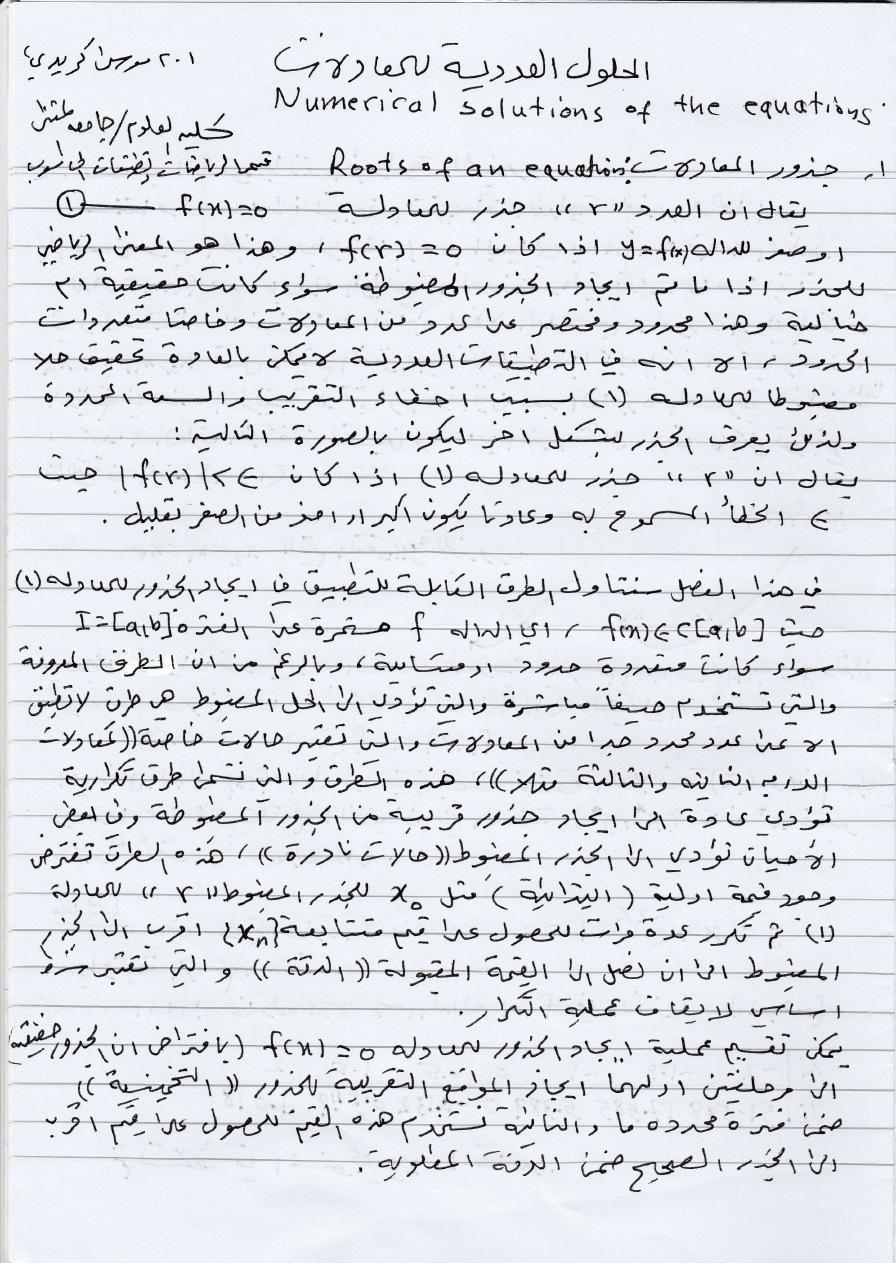 الحلول العددية للمعادلات
Numerical solutions of the equations.
كلية لعلوم/جامعة لمثنى
قسم الرياضيات وتطبيقات الحاسوب
١. جذور المعادلات: Roots of an equation
يقال ان العدد "r" جذر للمعادلة f(x)=0 ــــــ ①
او صفر للدالة y=f(x) اذا كان f(r)=0 ، وهذا هو المعنى الرياضي
للجذر اذا ما تم ايجاد الجذور المضبوطة سواء كانت حقيقية ام
خيالية وهذا محدود ومختصر على عدد من المعادلات وخاصتا متعددات
الحدود ، الا انه في التطبيقات العددية لا يمكن بالعادة تحقيق حلا
مضبوطا للمعادله (١) بسبب اخطاء التقريب والسعة المحددة
ولذلك يعرف الجذر بشكل اخر ليكون بالصورة التالية :
يقال ان "r" جذر للمعادله (١) اذا كان |f(r)|<∈ حيث
∈ الخطأ المسموح به وعادتا يكون اكبر او اصغر من الصفر بقليل .
في هذا الفصل سنتناول الطرق القابلة للتطبيق في ايجاد الجذور للمعادله (١)
حيث f(x)∈C[a,b] ، اي الداله f مستمرة على الفترة I=[a,b]
سواء كانت متعددة حدود او متسامية ، وبالرغم من ان الطرق المعروفة
والتي تستخدم صيغاً مباشرة والتي تؤدي الى الحل المضبوط هي طرق لا تطبق
الا على عدد محدد جدا من المعادلات والتي تعتبر حالات خاصة ((كمعادلات
الدرجه الثانيه والثالثة مثلا)) ، هذه الطرق والتي تسمى طرق تكرارية
تؤدي عادة الى ايجاد جذور قريبة من الجذور المضبوطة وفي بعض
الأحيان تؤدي الى الجذر المضبوط ((حالات نادرة)) ، هذه الطرق تفترض
وجود قيمة اولية (ابتدائية) مثل x₀ للجذر المضبوط "r" للمعادلة
(١) ثم تكرر عدة مرات للحصول على قيم متتابعة {xₙ} اقرب الى الجذر
المضبوط الى ان نصل الى القيمة المقبولة ((الدقة)) والتي تعتبر شرط
اساسي لايقاف عملية التكرار.
يمكن تقسيم عملية ايجاد الجذور للمعادله f(x)=0 (بافتراض ان الجذور حقيقية)
الى مرحلتين اولهما ايجاد المواقع التقريبية للجذور ((التخمينية))
ضمن فترة محدده ما والثانية نستخدم هذه القيم للحصول على قيم اقرب
الى الجذر الصحيح ضمن الدقة المطلوبة .